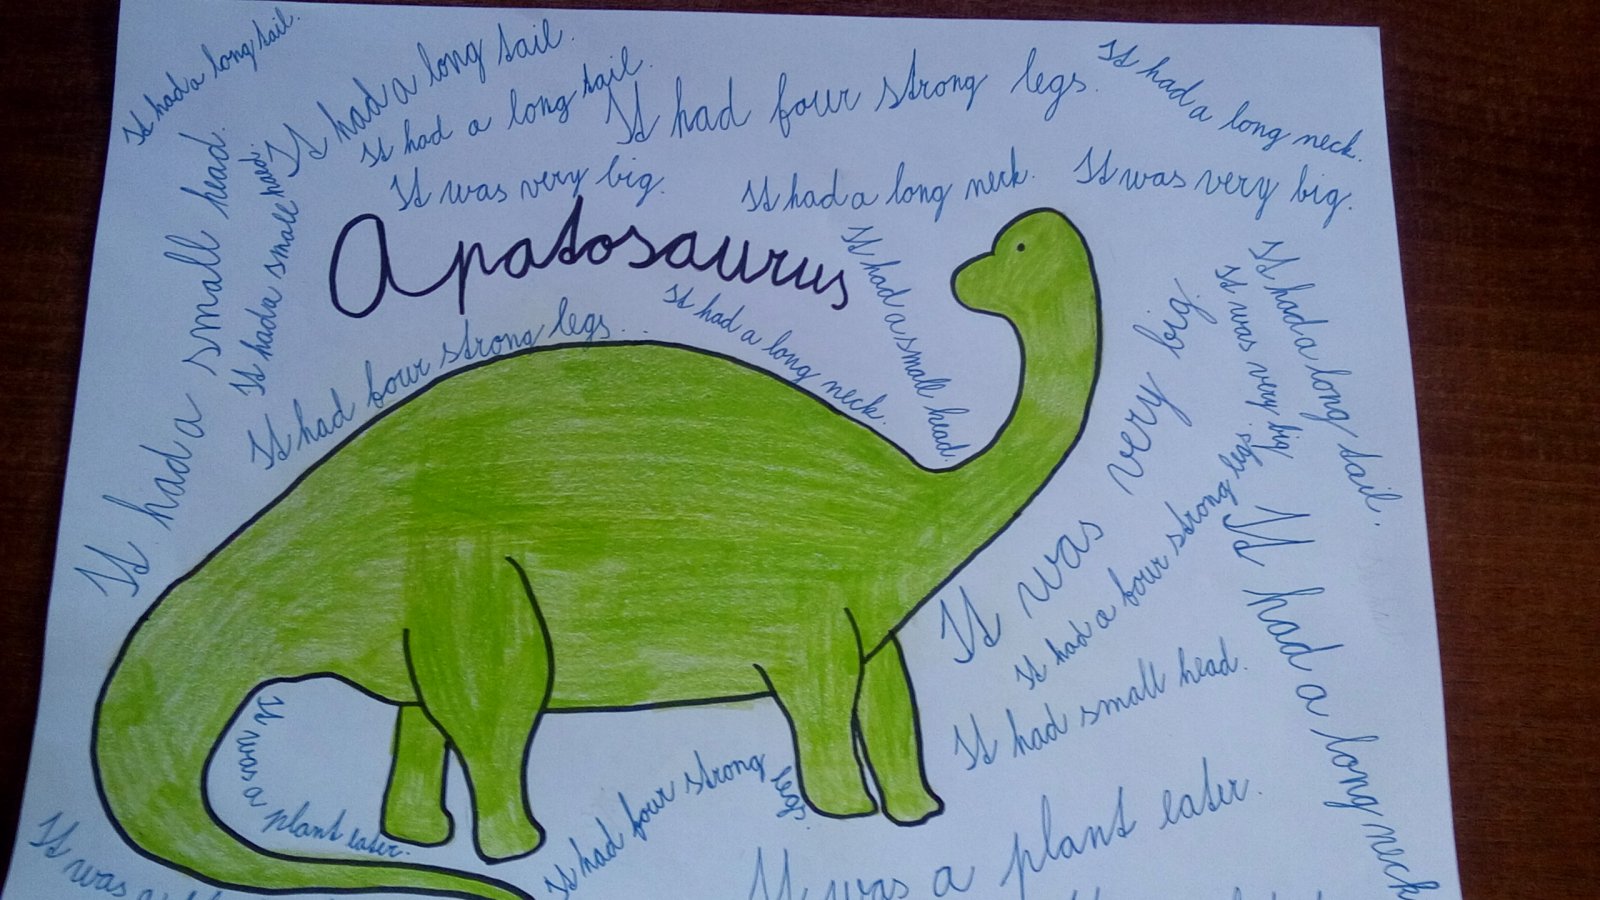 It had a long tail.
It had a long tail.
It had a long tail.
It had four strong legs.
It had a long neck.
It was very big.
It had a long neck.
It was very big.
It had a small head.
It had a small head.
Apatosaurus
It had a small head.
It had a long neck.
It had four strong legs...
It was very big.
It was very big
It had a long tail.
It had a four strong legs.
It had a long neck
It had small head.
It was a plant eater.
It had four strong legs.
It was a plant eater.
It was a